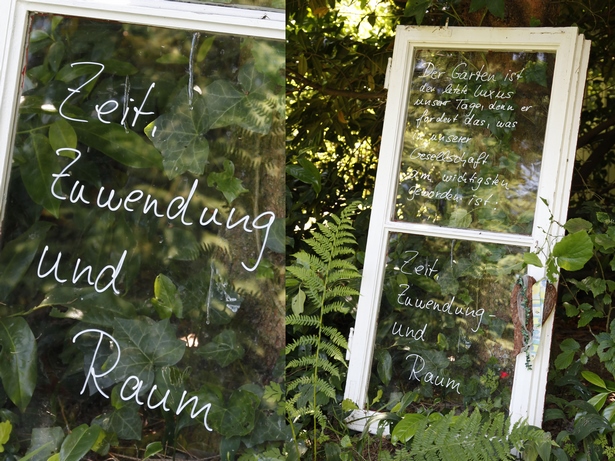 Zeit,
Zuwendung
und
Raum
Der Garten ist
der letzte Luxus
unserer Tage, denn er
fordert das, was
in unserer
Gesellschaft
zum wichtigsten
geworden ist.
Zeit,
Zuwendung-
und
Raum